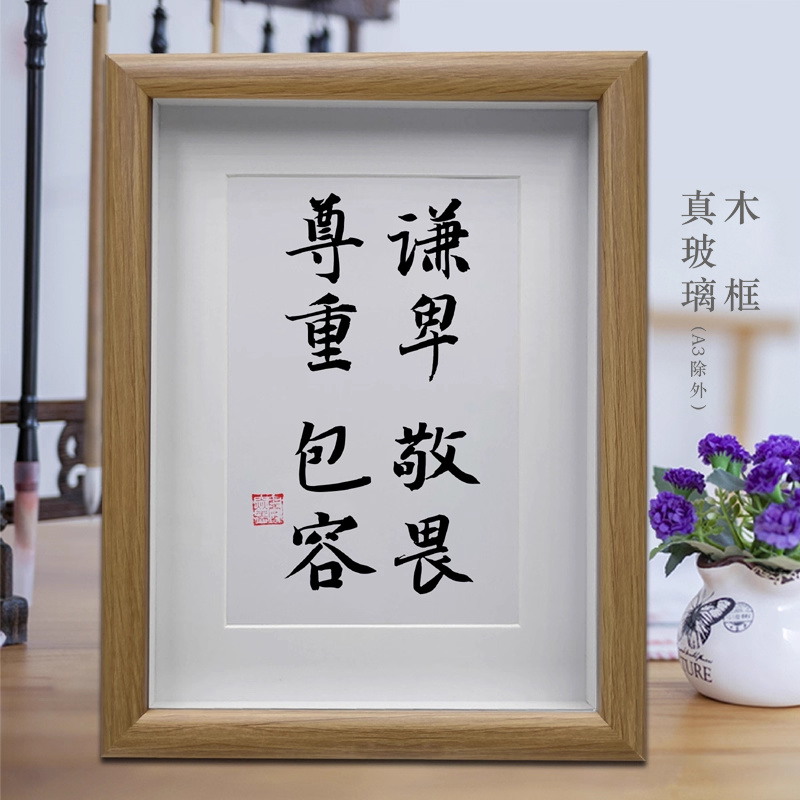 谦卑 敬畏
尊重 包容
木框
真玻璃(A3除外)